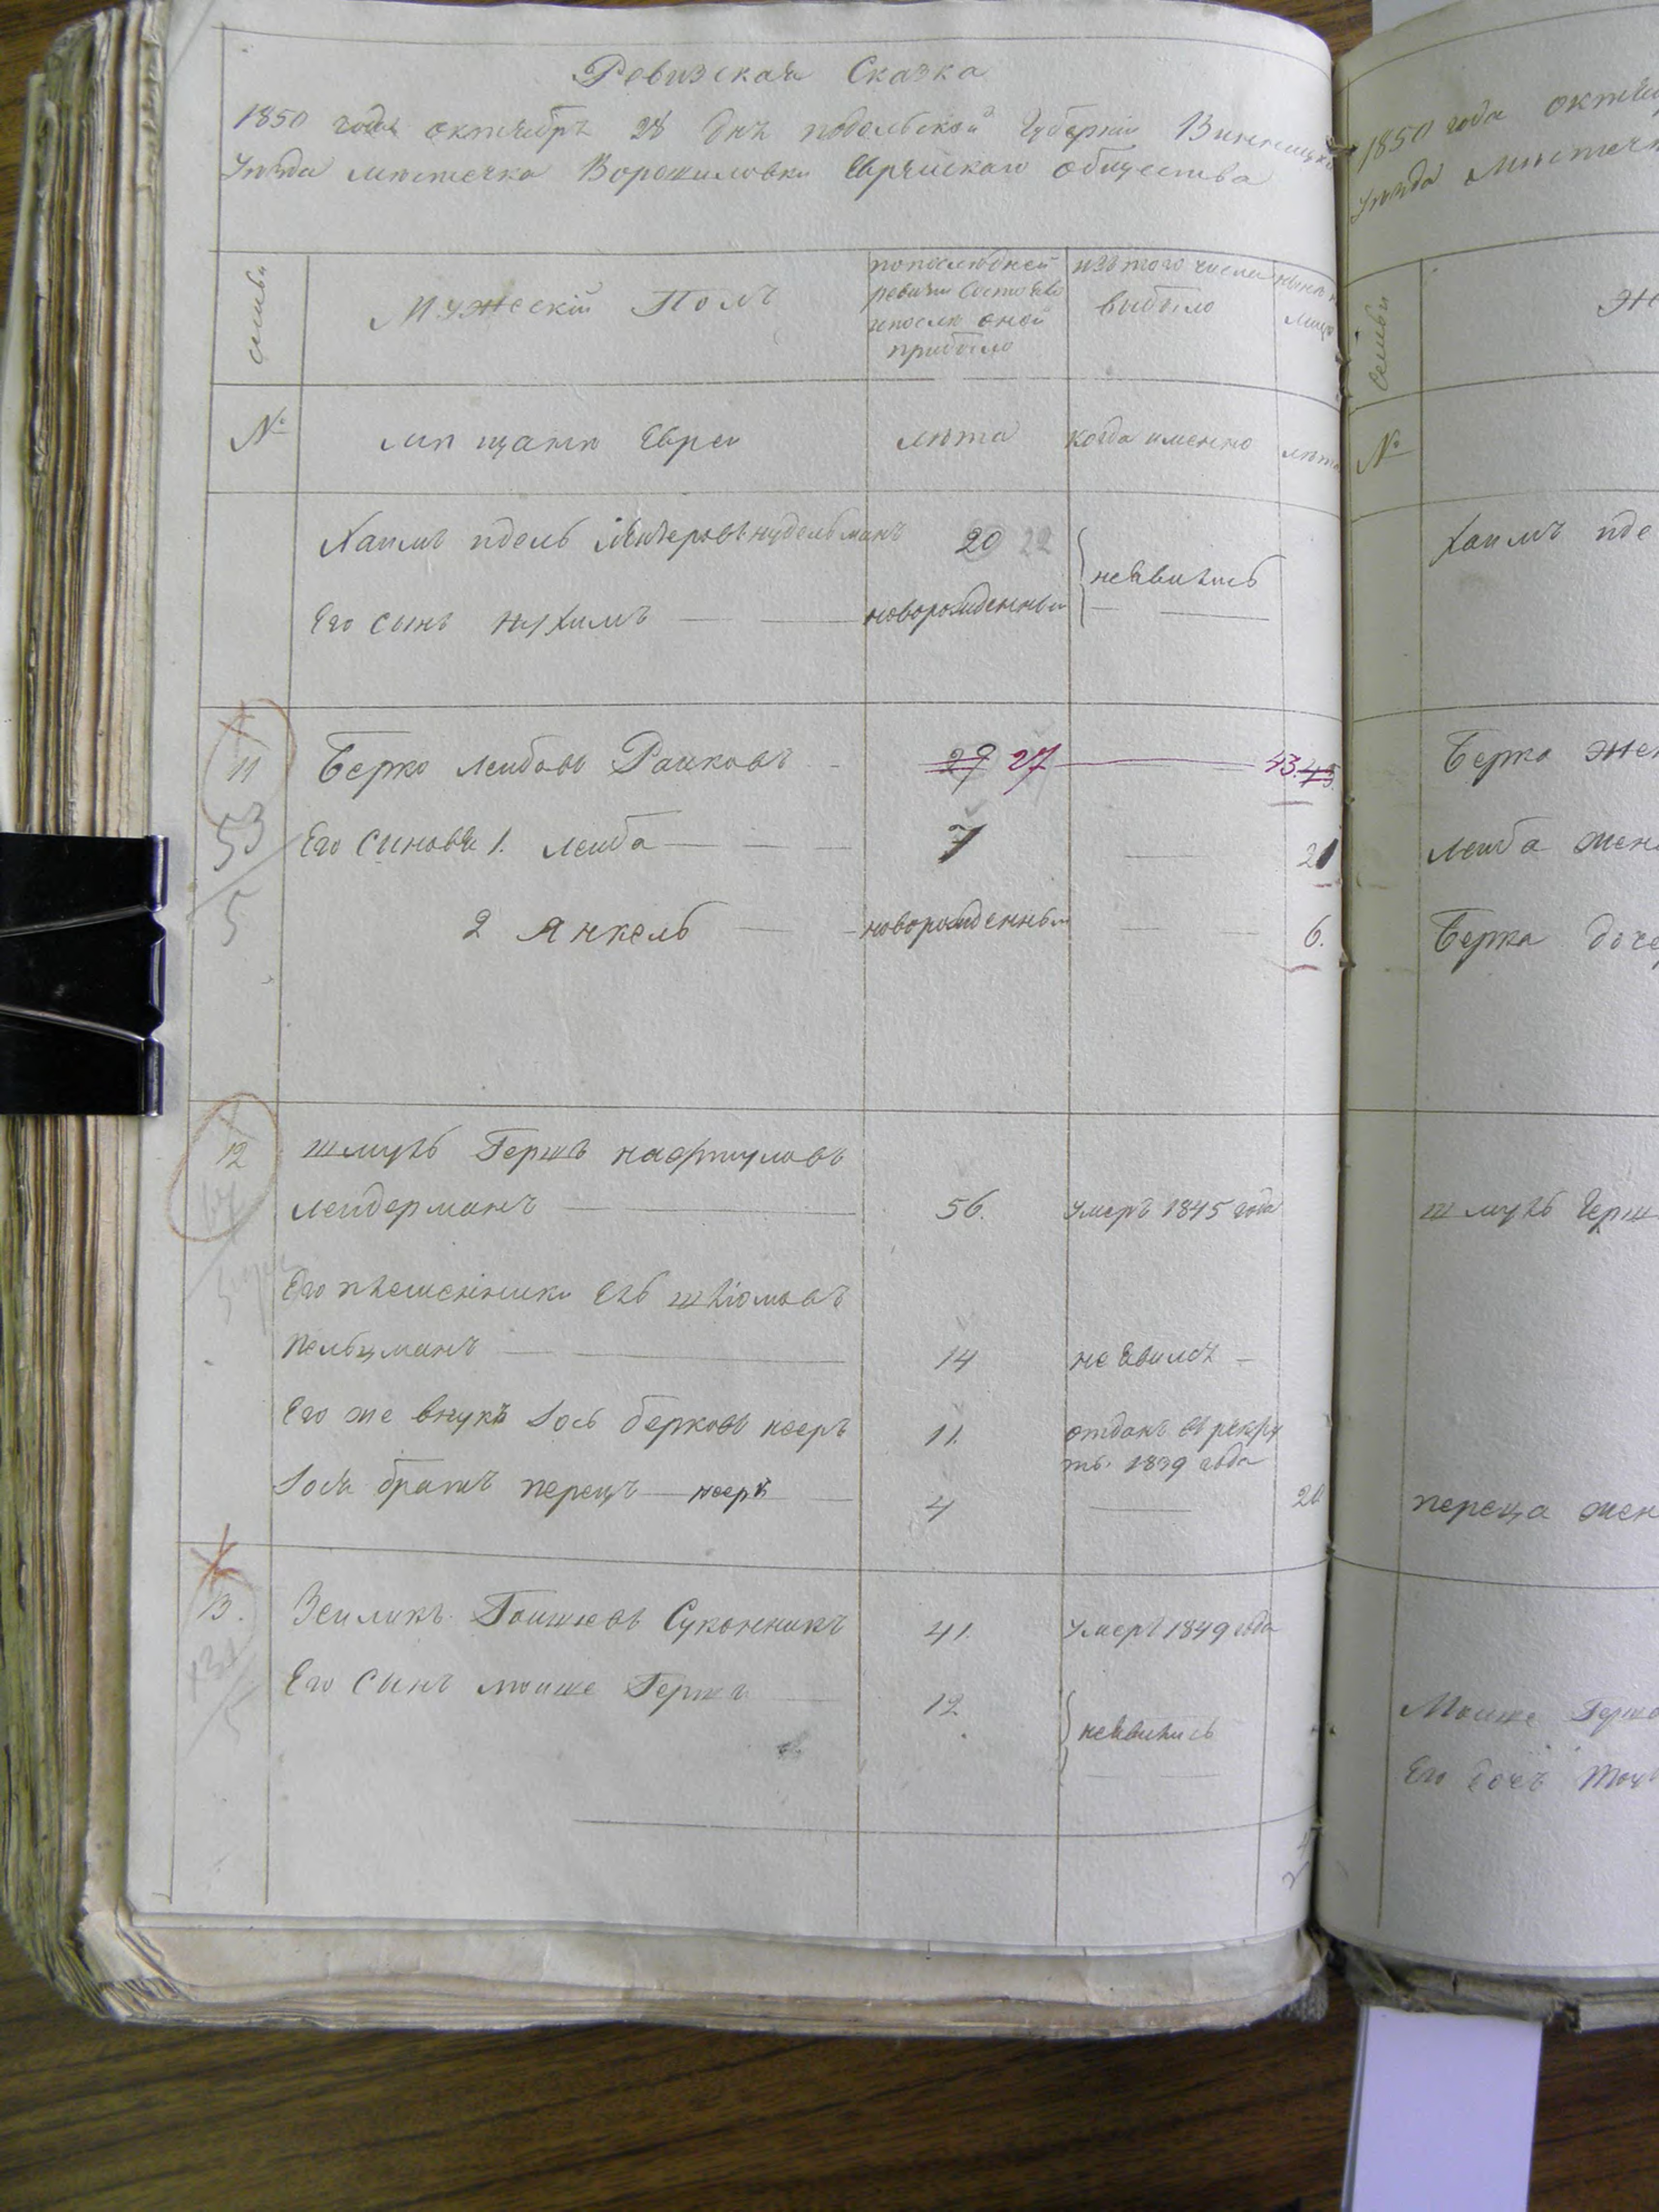 Ревизская Сказка
1850 года октября 28 дня подольской Губерніи Винницкаго
Уѣзда мѣстечка Ворошиловки Еврейскаго общества
семьи
Мужескій Полъ
попослѣдней
ревизіи состояло
ипослѣ оной
прибыло
изъ того числа
выбыло
нынѣ
лицо
№
мѣщане Евреи
лѣта
когда именно
лѣта
Хаимъ идель нудельманъ 20 22
неявились
Его сынъ нухимъ новорожденный
11 Берко лейбовъ Раиковъ 29 27 43. 45.
53
5
Его синовя 1. леиба 7 21
2 Янкель новорожденный 6.
12 шмуль Гершъ нафтуловъ
леидерманъ 56. умеръ 1845 года
Его племенники Ель шліомовъ
пельцманъ 14 неявился
Его же внукъ Іось берковъ кееръ 11. отданъ въ рекру
ты. 1839 года
Іося братъ перецъ кееръ 4 20
13. Зеиликъ Суконникъ 41. умеръ 1849 года
5
Его сынъ моише Гершъ 12
неявились
1850 года октя
уѣзда Мѣстечк
семьи
Же
№
Хаимъ иде
Берка жен
леиба жена
Берка доче
шмуль Герш
переца жен
Моише Герш
Его дочъ